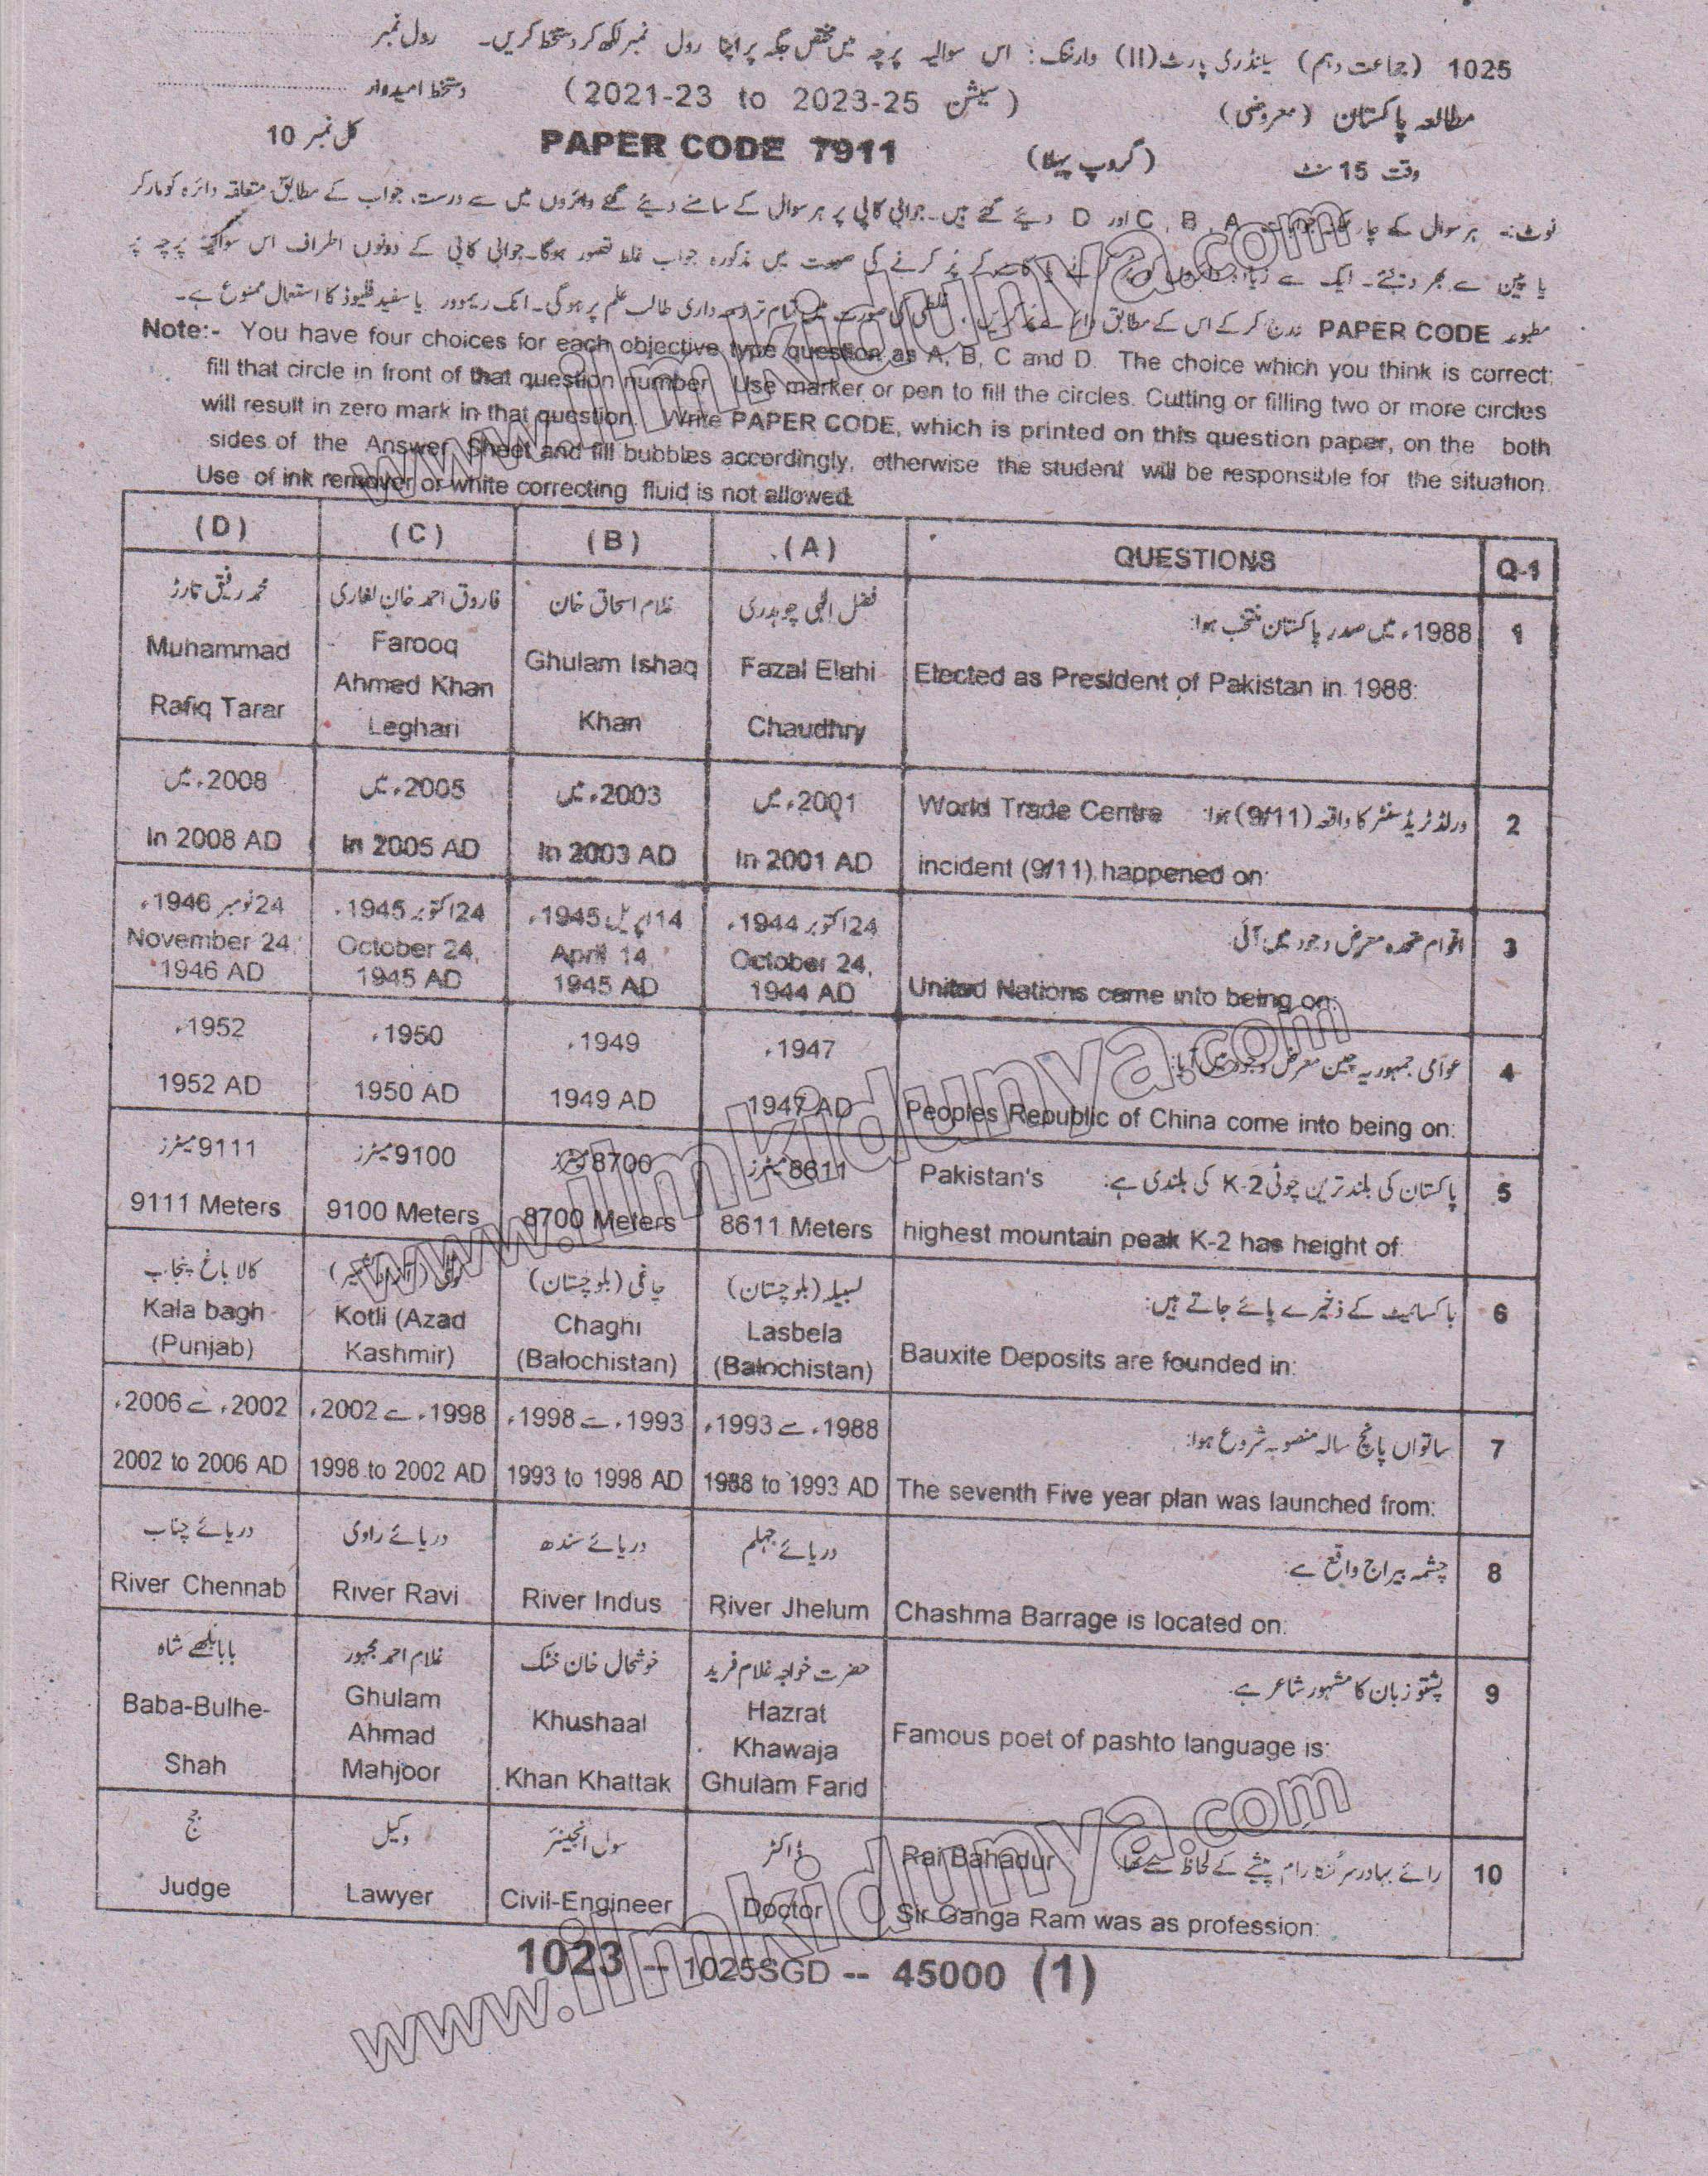 1025 (جماعت دہم) سیکنڈری پارٹ (II) وارننگ: اس سوالیہ پرچہ میں مختص جگہ پر اپنا رول نمبر لکھ کر دستخط کریں۔ رول نمبر
مطالعہ پاکستان (معروضی) (سیشن 2021-23 to 2023-25) دستخط امیدوار
وقت 15 منٹ (گروپ پہلا) PAPER CODE 7911 کل نمبر 10
نوٹ:- ہر سوال کے چار A , B , C اور D دیئے گئے ہیں۔ جوابی کاپی پر ہر سوال کے سامنے دیئے گئے دائروں میں سے درست جواب کے مطابق متعلقہ دائرہ کو مارکر
یا پین سے بھر دیجئے۔ ایک سے کرنے کی صورت میں مذکورہ جواب غلط تصور ہوگا۔ جوابی کاپی کے دونوں اطراف اس سوالیہ پرچہ پر
مطبوعہ PAPER CODE درج کر کے اس کے مطابق دائرے صورت میں تمام تر ذمہ داری طالب علم پر ہوگی۔ انک ریموور یا سفید فلیوڈ کا استعمال ممنوع ہے۔
Note:- You have four choices for each objective type question as A, B, C and D. The choice which you think is correct;
fill that circle in front of that question number. Use marker or pen to fill the circles. Cutting or filling two or more circles
will result in zero mark in that question. Write PAPER CODE, which is printed on this question paper, on the both
sides of the Answer Sheet and fill bubbles accordingly, otherwise the student will be responsible for the situation.
Use of ink remover or white correcting fluid is not allowed.
(D) (C) (B) (A) QUESTIONS Q-1
محمد رفیق تارڑ فاروق احمد خان لغاری غلام اسحاق خان فضل الٰہی چوہدری 1988ء میں صدر پاکستان منتخب ہوا: 1
Muhammad Rafiq Tarar Farooq Ahmed Khan Leghari Ghulam Ishaq Khan Fazal Elahi Chaudhry Elected as President of Pakistan in 1988:
2008ء میں 2005ء میں 2003ء میں 2001ء میں World Trade Centre ورلڈ ٹریڈ سنٹر کا واقعہ (9/11) ہوا: 2
In 2008 AD In 2005 AD In 2003 AD In 2001 AD incident (9/11) happened on:
24 نومبر 1946ء 24 اکتوبر 1945ء 14 اپریل 1945ء 24 اکتوبر 1944ء اقوام متحدہ معرض وجود میں آئی 3
November 24, 1946 AD October 24, 1945 AD April 14, 1945 AD October 24, 1944 AD United Nations came into being on:
1952ء 1950ء 1949ء 1947ء عوامی جمہوریہ چین معرض وجود میں آیا: 4
1952 AD 1950 AD 1949 AD 1947 AD Peoples Republic of China come into being on:
9111 میٹرز 9100 میٹرز 8700 میٹرز 8611 میٹرز Pakistan's پاکستان کی بلند ترین چوٹی K-2 کی بلندی ہے: 5
9111 Meters 9100 Meters 8700 Meters 8611 Meters highest mountain peak K-2 has height of:
کالا باغ پنجاب کوٹلی (آزاد کشمیر) چاغی (بلوچستان) لسبیلہ (بلوچستان) باکسائیٹ کے ذخیرے پائے جاتے ہیں: 6
Kala bagh (Punjab) Kotli (Azad Kashmir) Chaghi (Balochistan) Lasbela (Balochistan) Bauxite Deposits are founded in:
2002ء سے 2006ء 1998ء سے 2002ء 1993ء سے 1998ء 1988ء سے 1993ء ساتواں پانچ سالہ منصوبہ شروع ہوا: 7
2002 to 2006 AD 1998 to 2002 AD 1993 to 1998 AD 1988 to 1993 AD The seventh Five year plan was launched from:
دریائے چناب دریائے راوی دریائے سندھ دریائے جہلم چشمہ بیراج واقع ہے: 8
River Chennab River Ravi River Indus River Jhelum Chashma Barrage is located on:
بابا بلھے شاہ غلام احمد مہجور خوشحال خان خٹک حضرت خواجہ غلام فرید پشتو زبان کا مشہور شاعر ہے: 9
Baba-Bulhe-Shah Ghulam Ahmad Mahjoor Khushaal Khan Khattak Hazrat Khawaja Ghulam Farid Famous poet of pashto language is:
جج وکیل سول انجینئر ڈاکٹر Rai Bahadur رائے بہادر سر گنگا رام پیشے کے لحاظ سے تھا: 10
Judge Lawyer Civil-Engineer Doctor Sir Ganga Ram was as profession:
1023 -- 1025SGD -- 45000 (1)
www.ilmkidunya.com
www.ilmkidunya.com
www.ilmkidunya.com